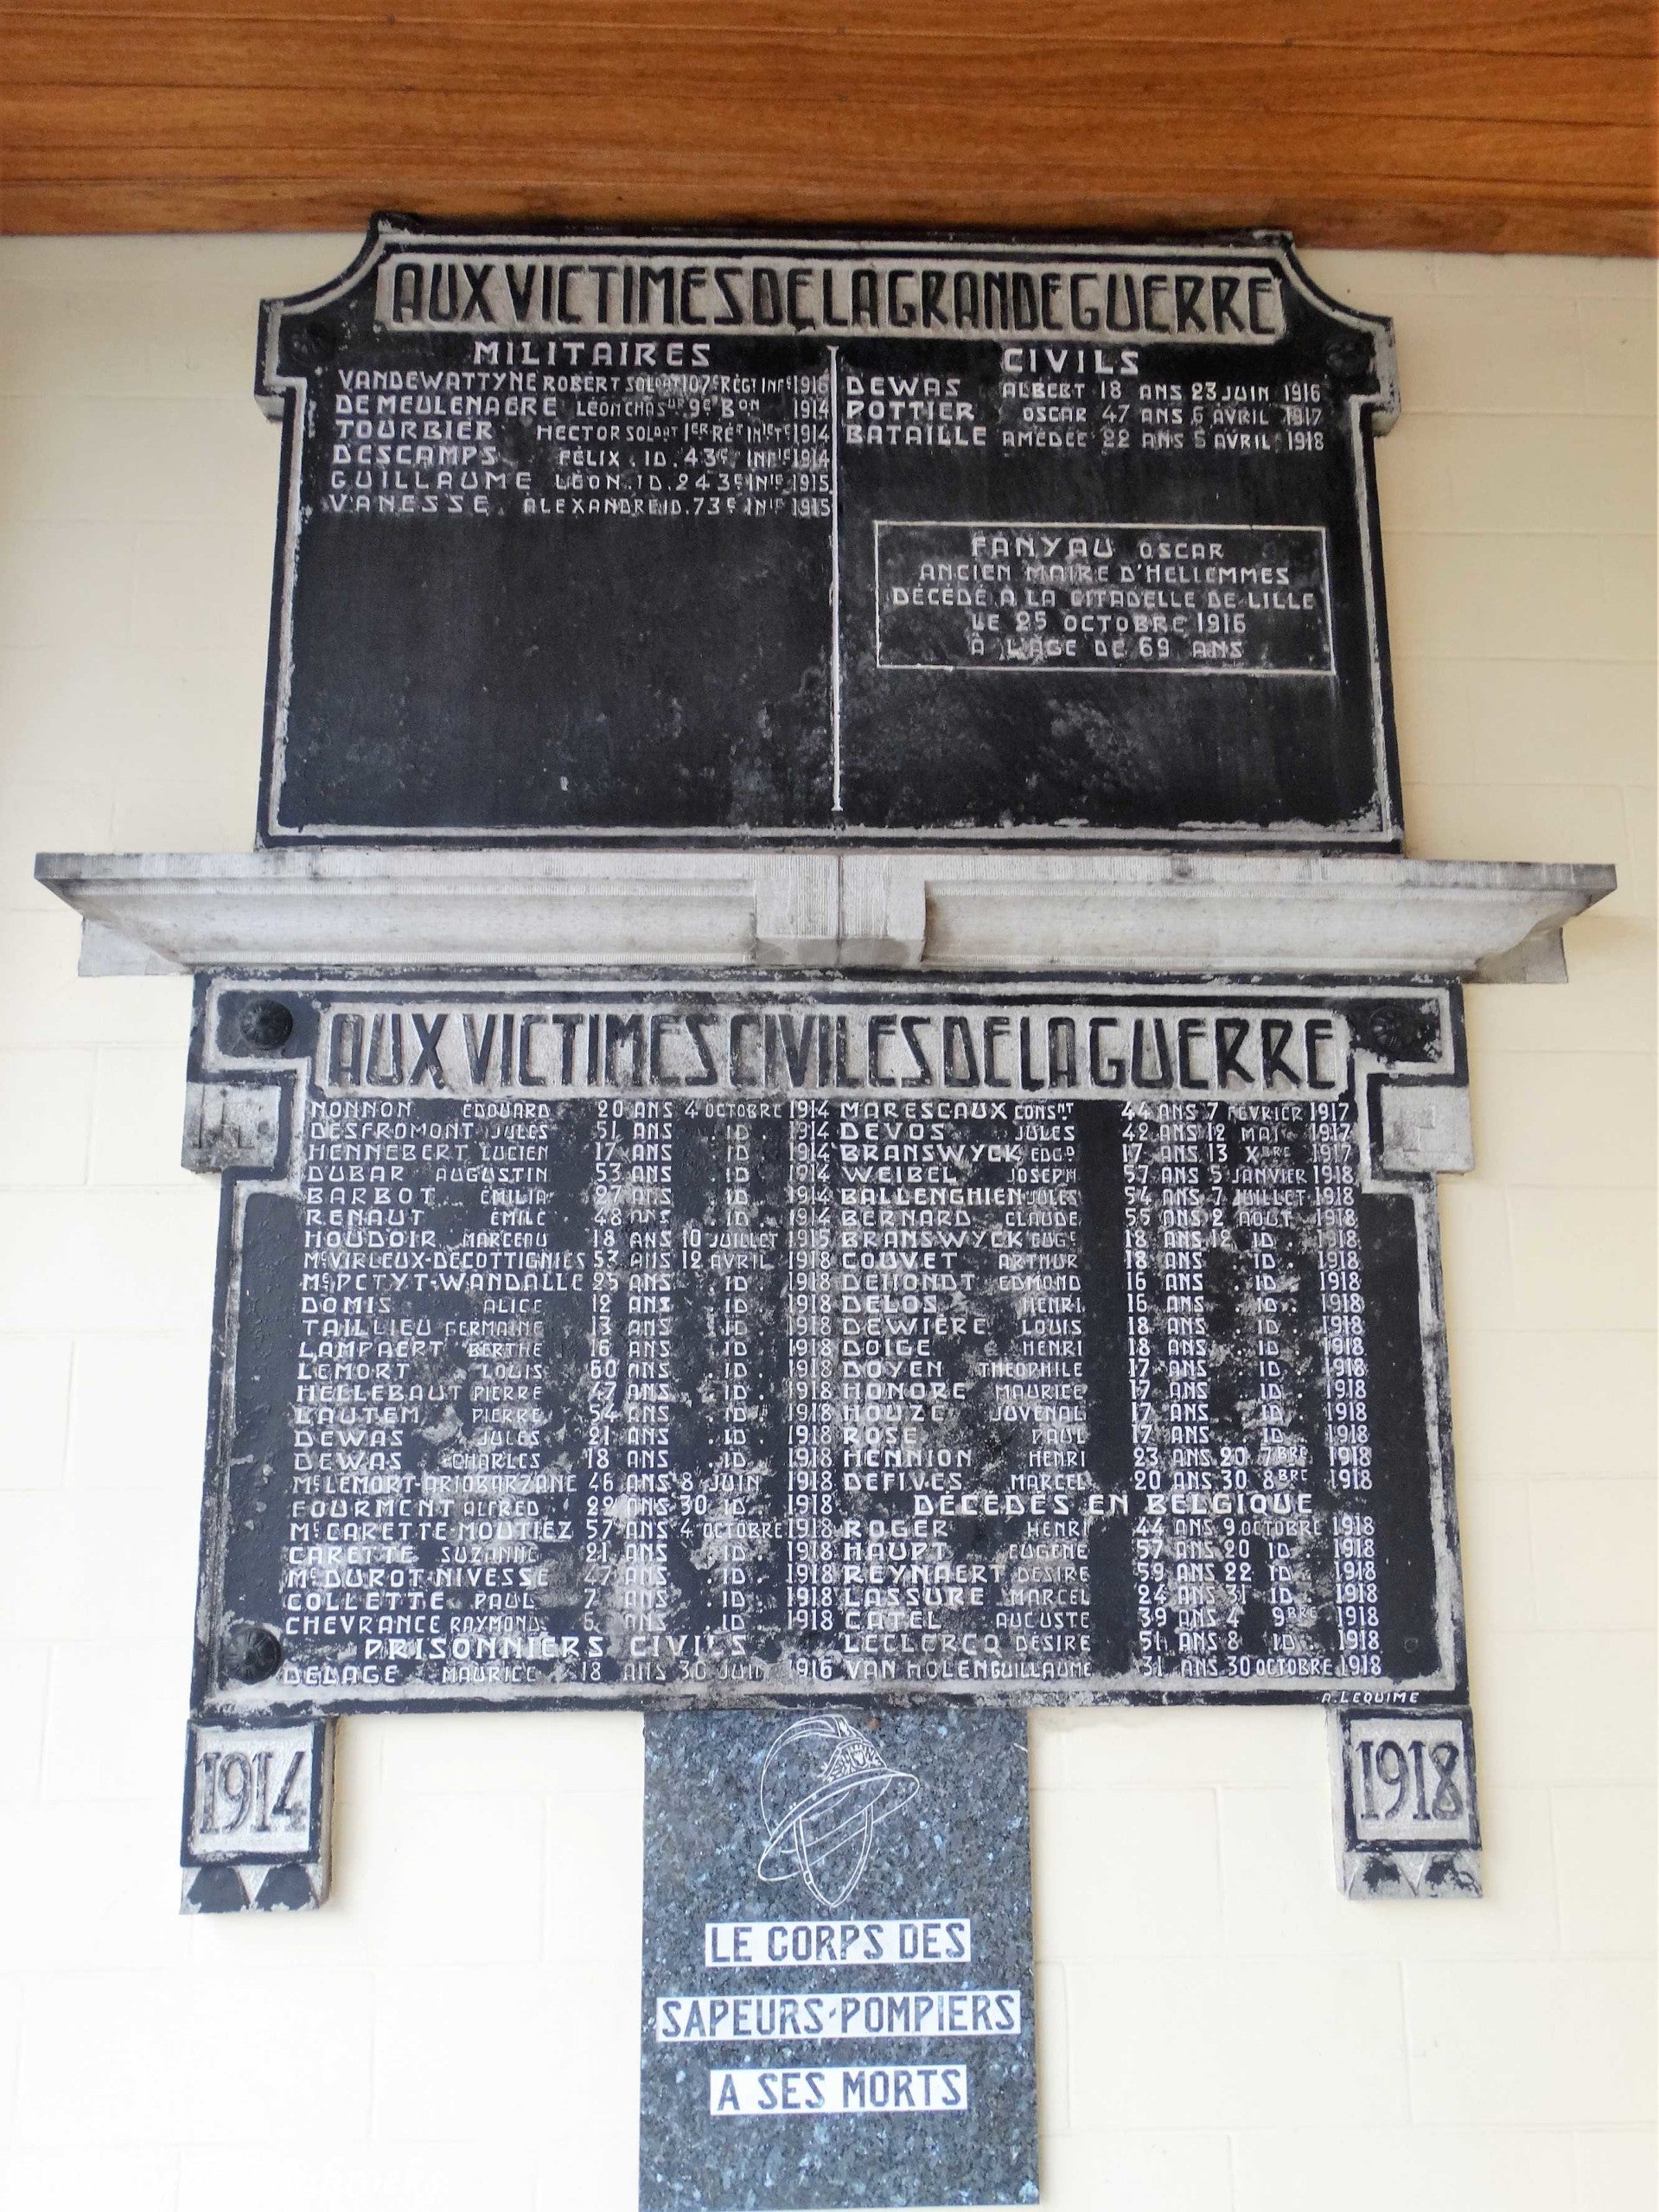 AUX VICTIMES DE LA GRANDE GUERRE
MILITAIRES
VANDEWATTYNE ROBERT SOLDAT 107E RÉGT INFIE 1916
DEMEULENAERE LÉON CHASUR 9E BON 1914
TOURBIER HECTOR SOLDAT 1ER RÉGT INFIE 1914
DESCAMPS FÉLIX . ID . 43E INFIE 1914
GUILLAUME LÉON . ID . 243E INFIE 1915
VANESSE ALEXANDRE ID . 73E INFIE 1915
CIVILS
DEWAS ALBERT 18 ANS 23 JUIN 1916
POTTIER OSCAR 47 ANS 6 AVRIL 1917
BATAILLE AMÉDÉE 22 ANS 5 AVRIL 1918
FANYAU OSCAR
ANCIEN MAIRE D'HELLEMMES
DÉCÉDÉ A LA CITADELLE DE LILLE
LE 25 OCTOBRE 1916
À L'ÂGE DE 69 ANS
AUX VICTIMES CIVILES DE LA GUERRE
NONNON ÉDOUARD 20 ANS 4 OCTOBRE 1914
DESFROMONT JULES 51 ANS . ID . 1914
HENNEBERT LUCIEN 17 ANS ID 1914
DUBAR AUGUSTIN 53 ANS ID 1914
BARBOT ÉMILIA 27 ANS ID 1914
RENAUT ÉMILE 48 ANS ID 1914
HOUDOIR MARCEAU 18 ANS 10 JUILLET 1915
ME VIRLEUX-DECOTTIGNIES 53 ANS 12 AVRIL 1918
ME PETYT-WANDALLE 25 ANS . ID 1918
DOMIS ALICE 12 ANS . ID 1918
TAILLIEU GERMAINE 13 ANS . ID 1918
LAMPAERT BERTHE 16 ANS . ID . 1918
LEMORT LOUIS 60 ANS . ID . 1918
HELLEBAUT PIERRE 47 ANS . ID . 1918
LAUTEM PIERRE 54 ANS . ID . 1918
DEWAS JULES 21 ANS . ID . 1918
DEWAS CHARLES 18 ANS . ID . 1918
ME LEMORT-ARIOBARZANE 46 ANS 8 JUIN 1918
FOURMENT ALFRED 29 ANS 30 ID . 1918
ME CARETTE-MOUTIEZ 57 ANS 4 OCTOBRE 1918
CARETTE SUZANNE 21 ANS . ID . 1918
ME DUROT-NIVESSE 47 ANS . ID . 1918
COLLETTE PAUL 7 ANS . ID . 1918
CHEVRANCE RAYMOND 6 ANS . ID 1918
PRISONNIERS CIVILS
DELAGE MAURICE 18 ANS 30 JUIN 1916
MARESCAUX CONSNT 44 ANS 7 FÉVRIER 1917
DEVOS JULES 42 ANS 12 MAI 1917
BRANSWYCK EDGD 17 ANS 13 XBRE 1917
WEIBEL JOSEPH 57 ANS 5 JANVIER 1918
BALLENGHIEN JULES 54 ANS 7 JUILLET 1918
BERNARD CLAUDE 55 ANS 2 AOUT 1918
BRANSWYCK EUGE 18 ANS 12 ID . 1918
COUVET ARTHUR 18 ANS . ID . 1918
DEHONDT EDMOND 16 ANS . ID . 1918
DELOS HENRI 16 ANS . ID . 1918
DEWIÈRE LOUIS 18 ANS . ID . 1918
DOIGE HENRI 18 ANS . ID . 1918
DOYEN THÉOPHILE 17 ANS . ID . 1918
HONORE MAURICE 17 ANS ID . 1918
HOUZE JUVENAL 17 ANS ID . 1918
ROSE PAUL 17 ANS ID . 1918
HENNION HENRI 23 ANS 20 7BRE 1918
DEFIVES MARCEL 20 ANS 30 8BRE 1918
DÉCÉDÉS EN BELGIQUE
ROGER HENRI 44 ANS 9 OCTOBRE 1918
HAUPT EUGÈNE 57 ANS 20 ID . 1918
REYNAERT DÉSIRÉ 59 ANS 22 ID . 1918
LASSURE MARCEL 24 ANS 31 ID . 1918
CATEL AUGUSTE 39 ANS 4 9BRE 1918
LECLERCQ DÉSIRÉ 51 ANS 8 ID . 1918
VAN HOLEN GUILLAUME 31 ANS 30 OCTOBRE 1918
A. LEQUIME
1914
1918
LE CORPS DES
SAPEURS-POMPIERS
A SES MORTS